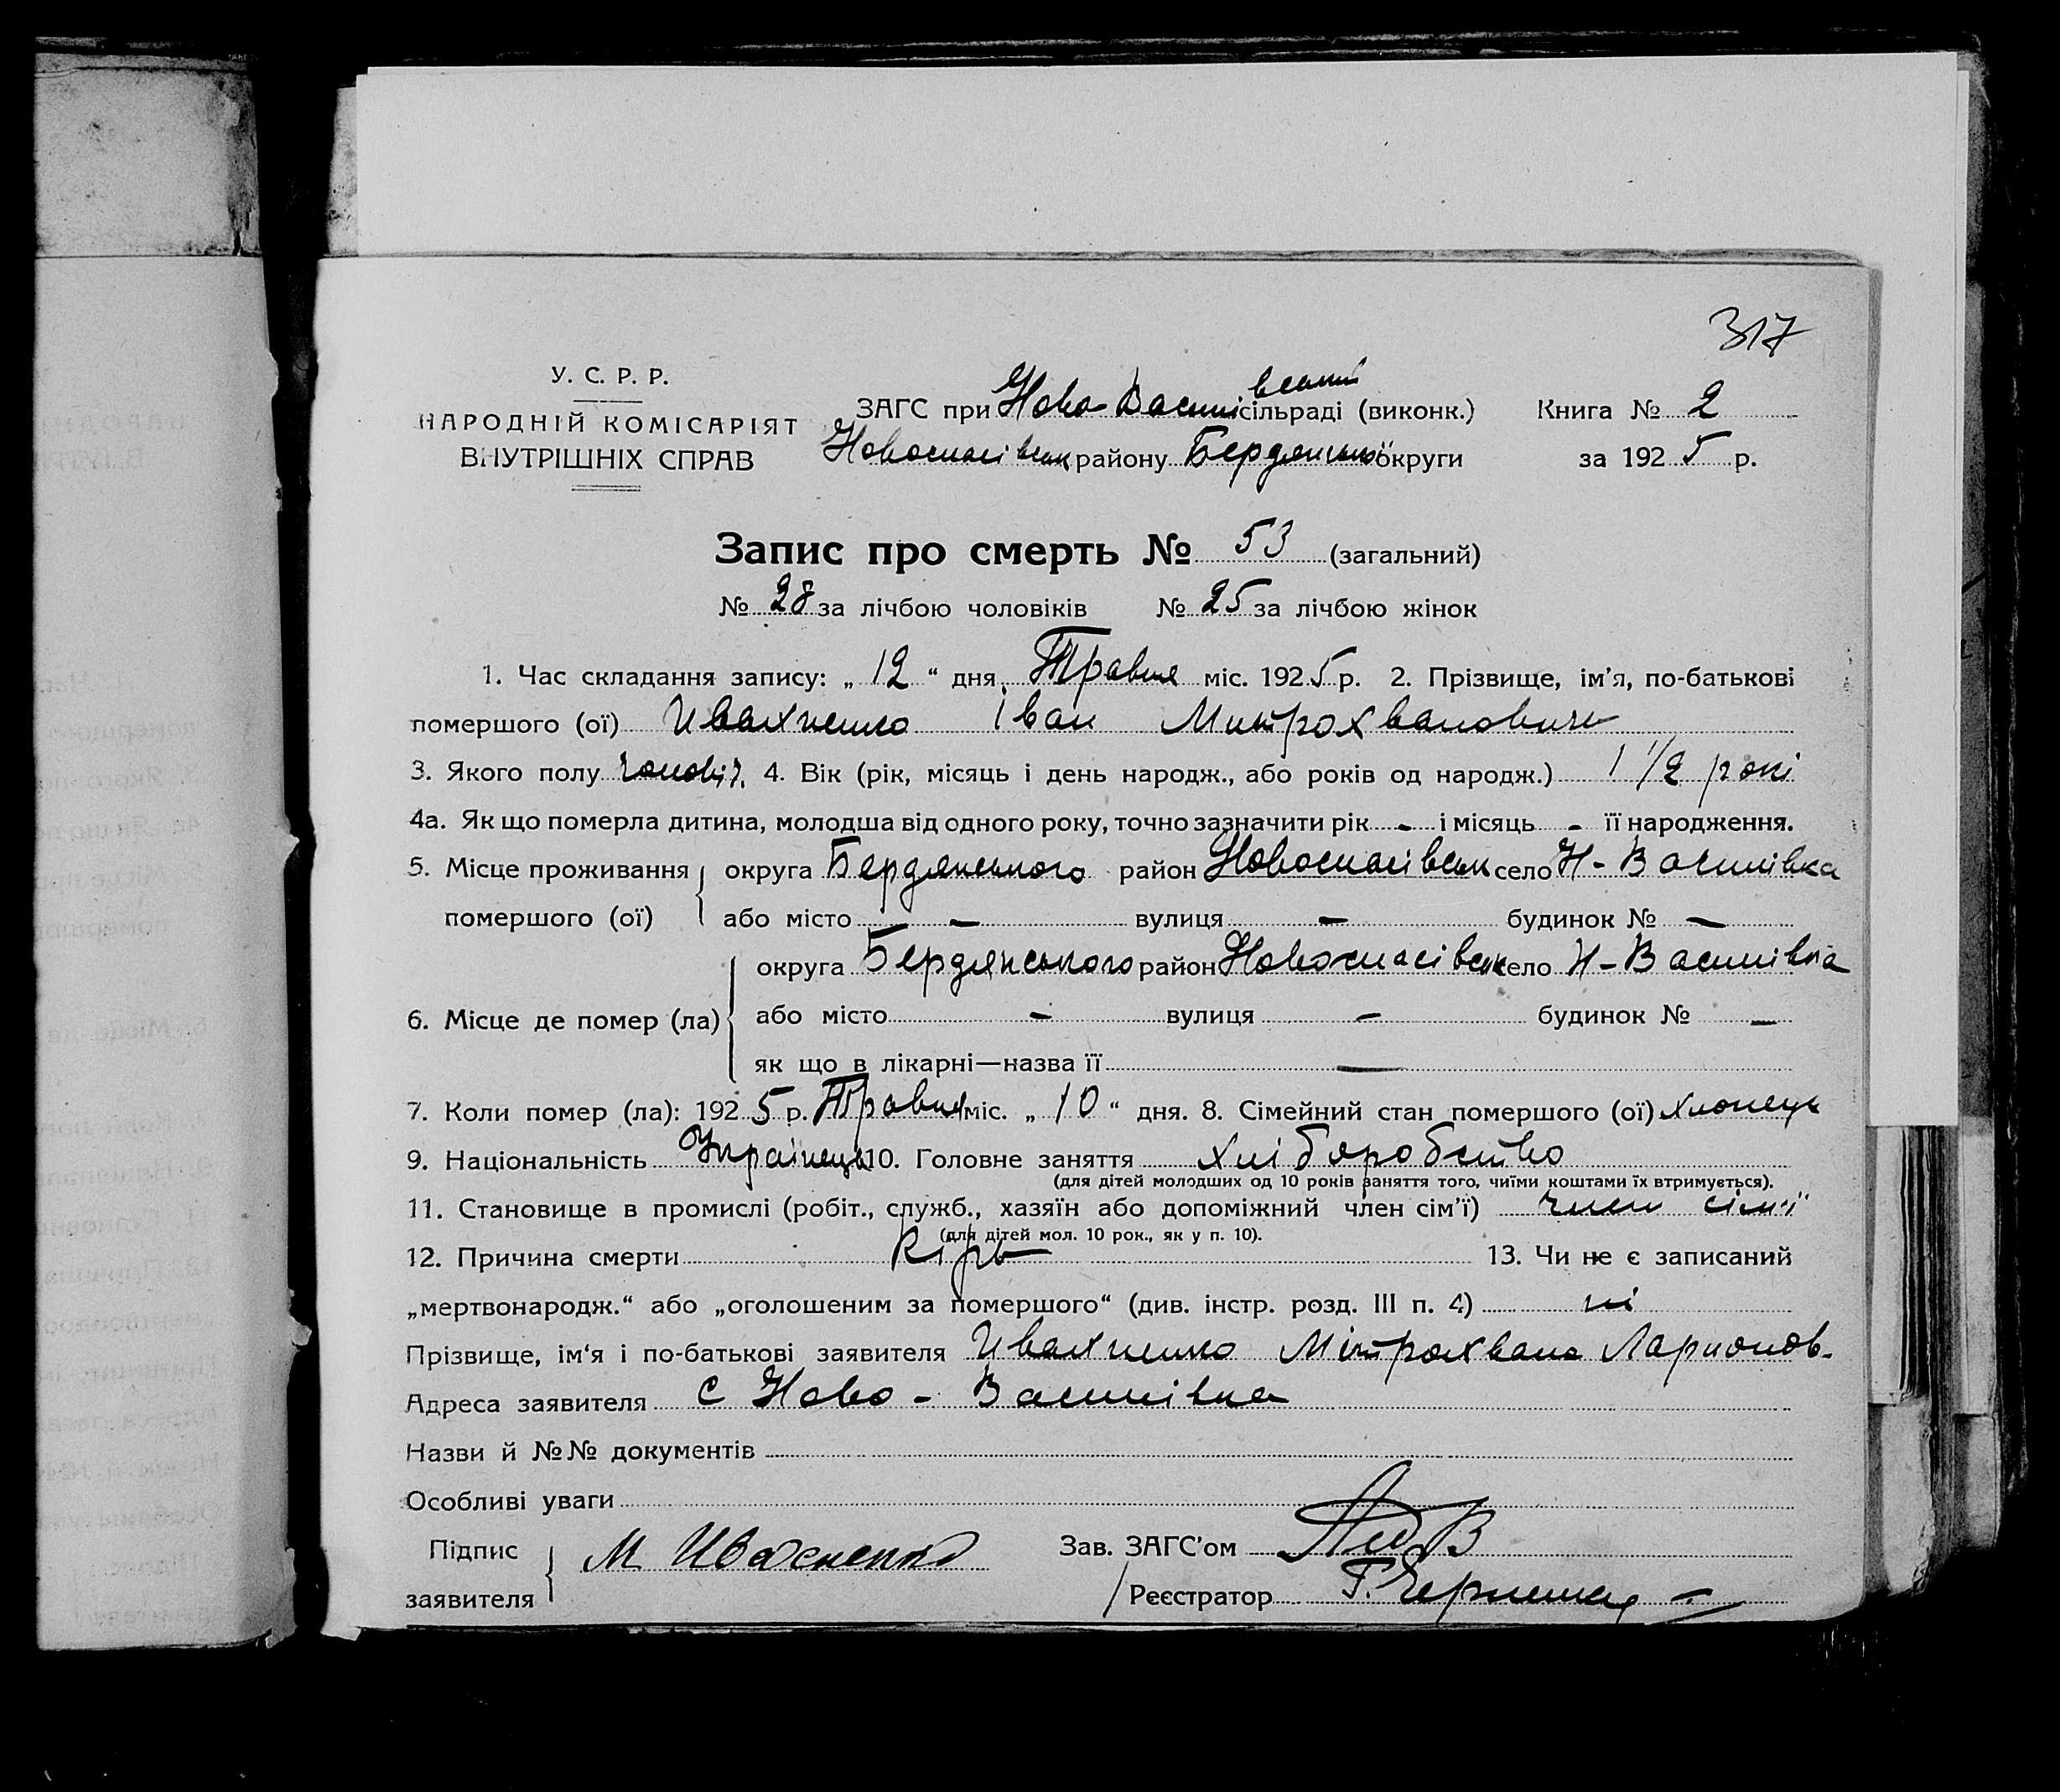 317
У. С. Р. Р.
НАРОДНІЙ КОМІСАРІЯТ
ВНУТРІШНІХ СПРАВ
ЗАГС при Ново-Василівській сільраді (виконк.)
Новоспасівськ району Бердянської округи
Книга № 2
за 1925 р.
Запис про смерть № 53 (загальний)
№ 28 за лічбою чоловіків № 25 за лічбою жінок
1. Час складання запису: „ 12 “ дня Травня міс. 1925 р. 2. Прізвище, ім’я, по-батькові
помершого (ої) Ивахненко Іван Митрохванович
3. Якого полу чоловіч. 4. Вік (рік, місяць і день народж., або років од народж.) 1 1/2 рокі
4а. Як що померла дитина, молодша від одного року, точно зазначити рік - і місяць - її народження.
5. Місце проживання помершого (ої) округа Бердянського район Новоспасівськ село Н-Василівка
або місто - вулиця - будинок № -
6. Місце де помер (ла) округа Бердянського район Новоспасівськ село Н-Василівка
або місто - вулиця - будинок № -
як що в лікарні—назва її —
7. Коли помер (ла): 1925 р. Травня міс. „ 10 “ дня. 8. Сімейний стан помершого (ої) хлопець
9. Національність Українець 10. Головне заняття хліборобство
(для дітей молодших од 10 років заняття того, чиїми коштами їх втримується).
11. Становище в промислі (робіт., служб., хазяїн або допоміжний член сім’ї) член сім'ї
(для дітей мол. 10 рок., як у п. 10).
12. Причина смерти Кірь 13. Чи не є записаний
„мертвонародж.“ або „оголошеним за помершого“ (див. інстр. розд. III п. 4) ні
Прізвище, ім‘я і по-батькові заявителя Ивахненко Мітрохвана Ларионов.
Адреса заявителя с Ново-Василівка
Назви й №№ документів
Особливі уваги
Підпис заявителя М Ивахненко
Зав. ЗАГС’ом
Реєстратор Г.